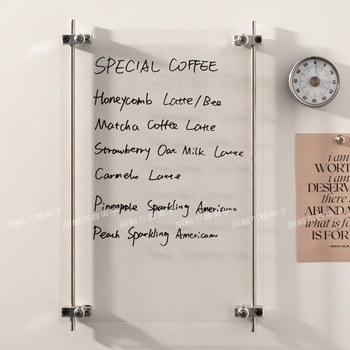 SPECIAL COFFEE
Honeycomb Latte/Bee
Matcha Coffee Latte
Strawberry Oat Milk Latte
Carmelo Latte
Pineapple Sparkling Americano
Peach Sparkling Americano
i am
WORT
i am
DESERV
there is
ABUNDA
what is fo
IS FOR